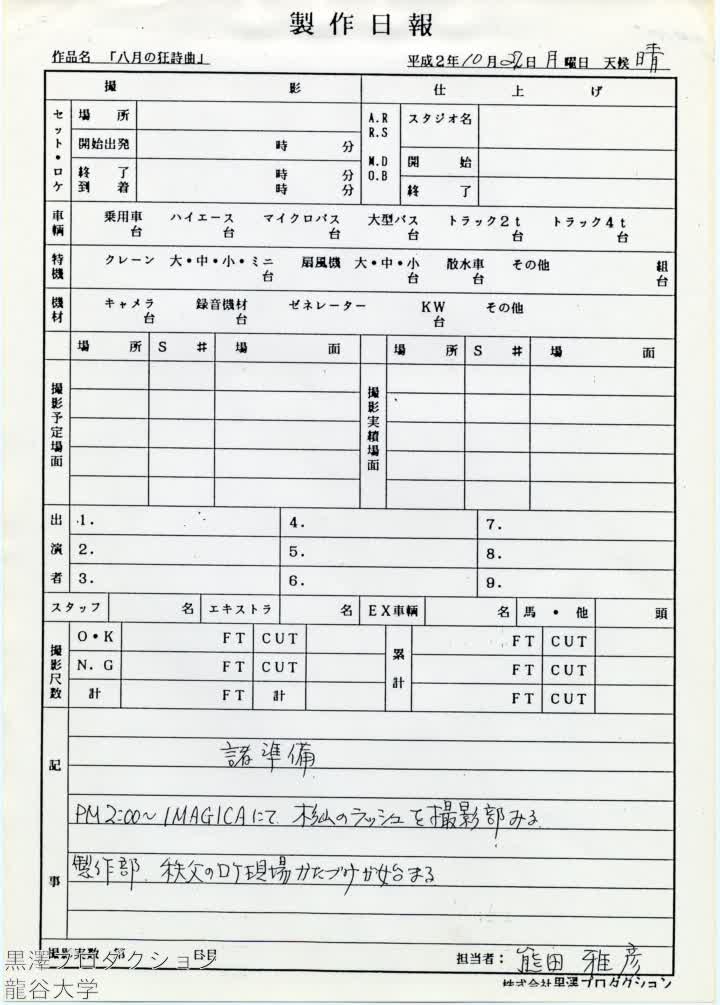 製作日報
作品名 「八月の狂詩曲」 平成2年10月22日月曜日 天候 晴
撮 影 仕 上 げ
セット・ロケ 場 所 A.R R.S M.D O.B スタジオ名
開始出発 時 分 開 始
終 了 時 分 終 了
到 着 時 分
車輌 乗用車 台 ハイエース 台 マイクロバス 台 大型バス 台 トラック2t 台 トラック4t 台
特機 クレーン 大・中・小・ミニ 台 扇風機 大・中・小 台 散水車 台 その他 組 台
機材 キャメラ 台 録音機材 台 ゼネレーター KW 台 その他
場 所 S # 場 面 場 所 S # 場 面
撮影予定場面 撮影実績場面
出演者 1. 4. 7.
2. 5. 8.
3. 6. 9.
スタッフ 名 エキストラ 名 EX車輌 名 馬・他 頭
撮影尺数 O・K FT CUT 累計 FT CUT
N.G FT CUT FT CUT
計 FT 計 FT CUT
記事
諸準備
PM2:00〜IMAGICAにて 杉山のラッシュを撮影部みる
製作部、秩父のロケ現場かたづけが始まる
担当者: 熊田雅彦
株式会社黒澤プロダクション
黒澤プロダクション
龍谷大学